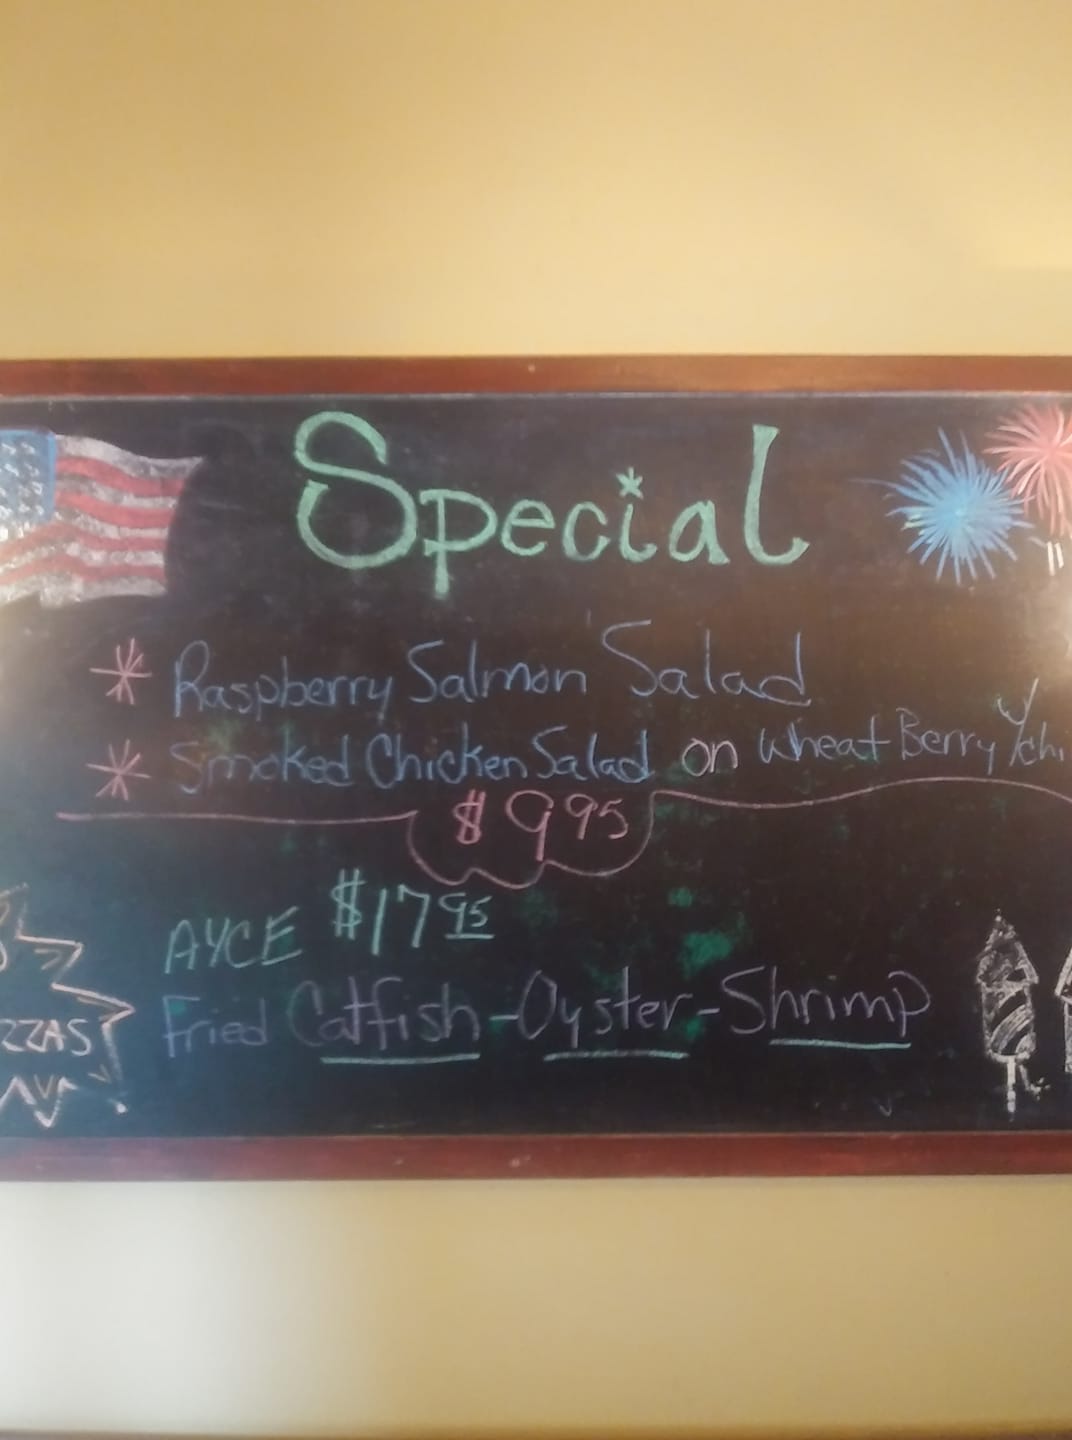 Special
* Raspberry Salmon Salad
* Smoked Chicken Salad on Wheat Berry w/chi
$9.95
AYCE $17.95
Fried Catfish-Oyster-Shrimp
ZZAS